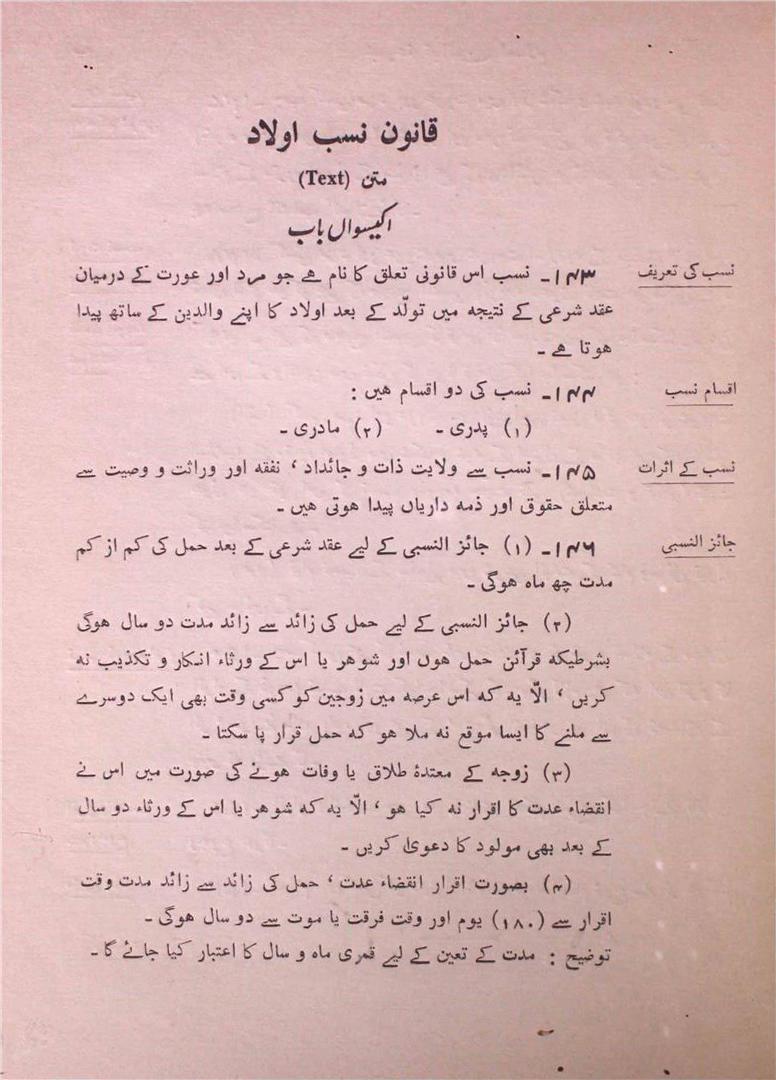 قانون نسب اولاد
متن (Text)
اکیسواں باب
نسب کی تعریف
۱۴۳۔ نسب اس قانونی تعلق کا نام ہے جو مرد اور عورت کے درمیان
عقد شرعی کے نتیجہ میں تولّد کے بعد اولاد کا اپنے والدین کے ساتھ پیدا
ہوتا ہے ۔
اقسام نسب
۱۴۴۔ نسب کی دو اقسام ہیں :
(۱) پدری ۔ (۲) مادری ۔
نسب کے اثرات
۱۴۵۔ نسب سے ولایت ذات و جائداد ، نفقہ اور وراثت و وصیت سے
متعلق حقوق اور ذمہ داریاں پیدا ہوتی ہیں ۔
جائز النسبی
۱۴۶۔ (۱) جائز النسبی کے لیے عقد شرعی کے بعد حمل کی کم از کم
مدت چھ ماہ ہوگی ۔
(۲) جائز النسبی کے لیے حمل کی زائد سے زائد مدت دو سال ہوگی
بشرطیکہ قرآئن حمل ہوں اور شوہر یا اس کے ورثاء انکار و تکذیب نہ
کریں ، الّا یہ کہ اس عرصہ میں زوجین کو کسی وقت بھی ایک دوسرے
سے ملنے کا ایسا موقع نہ ملا ہو کہ حمل قرار پا سکتا ۔
(۳) زوجہ کے معتدۂ طلاق یا وفات ہونے کی صورت میں اس نے
انقضاء عدت کا اقرار نہ کیا ہو ، الّا یہ کہ شوہر یا اس کے ورثاء دو سال
کے بعد بھی مولود کا دعویٰ کریں ۔
(۴) بصورت اقرار انقضاء عدت ، حمل کی زائد سے زائد مدت وقت
اقرار سے (۱۸۰) یوم اور وقت فرقت یا موت سے دو سال ہوگی ۔
توضیح : مدت کے تعین کے لیے قمری ماہ و سال کا اعتبار کیا جائے گا ۔